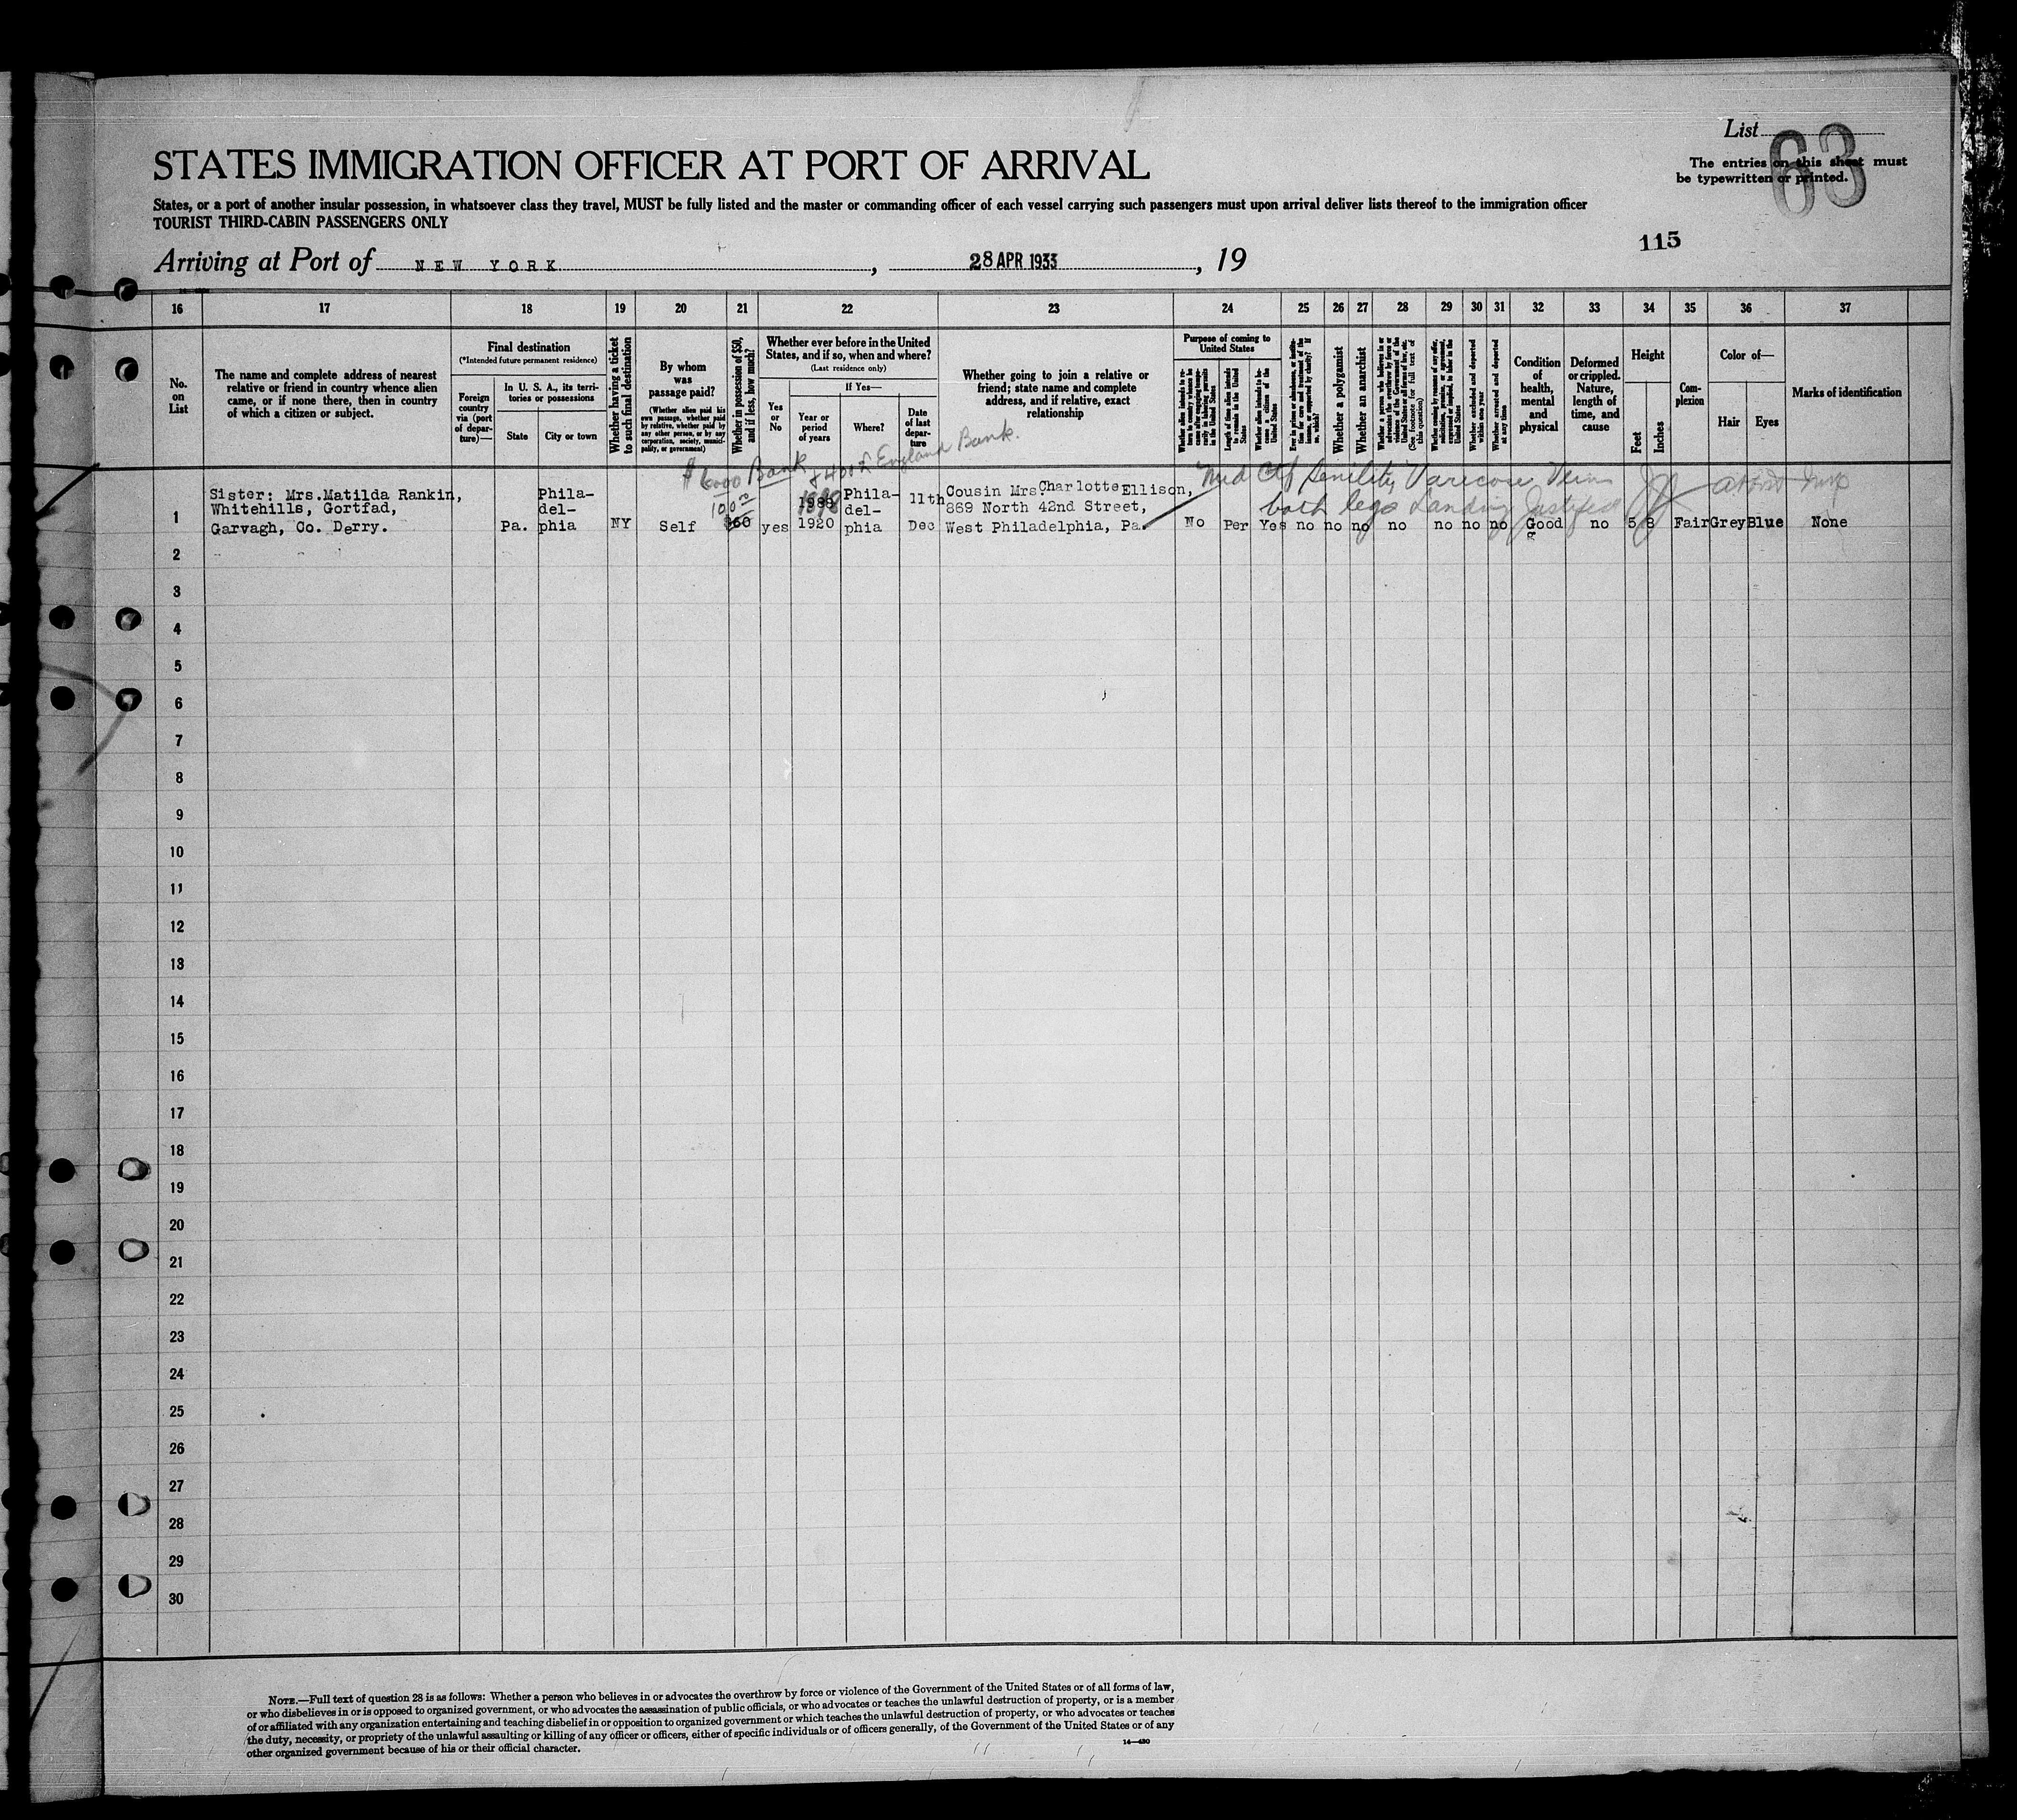 List
63
The entries on this sheet must
be typewritten or printed.
STATES IMMIGRATION OFFICER AT PORT OF ARRIVAL
States, or a port of another insular possession, in whatsoever class they travel, MUST be fully listed and the master or commanding officer of each vessel carrying such passengers must upon arrival deliver lists thereof to the immigration officer
TOURIST THIRD-CABIN PASSENGERS ONLY
115
Arriving at Port of NEW YORK, 28 APR 1933, 19
16 17 18 19 20 21 22 23 24 25 26 27 28 29 30 31 32 33 34 35 36 37
No.
on
List
The name and complete address of nearest
relative or friend in country whence alien
came, or if none there, then in country
of which a citizen or subject.
Final destination
(*Intended future permanent residence)
Foreign
country
via (port
of depar-
ture)—
In U. S. A., its terri-
tories or possessions
State
City or town
Whether having a ticket
to such final destination
By whom
was
passage paid?
(Whether alien paid his
own passage, whether paid
by relative, whether paid by
any other person, or by any
corporation, society, munici-
pality, or government)
Whether in possession of $50,
and if less, how much?
Whether ever before in the United
States, and if so, when and where?
(Last residence only)
Yes
or
No
If Yes—
Year or
period
of years
Where?
Date
of last
depar-
ture
Whether going to join a relative or
friend; state name and complete
address, and if relative, exact
relationship
Purpose of coming to
United States
Whether alien intends to re-
turn to country whence he
came after engaging tempo-
rarily in laboring pursuits
in the United States
Length of time alien intends
to remain in the United
States
Whether alien intends to be-
come a citizen of the
United States
Ever in prison or almshouse, or institu-
tion for care and treatment of the
insane, or supported by charity? If
so, which?
Whether a polygamist
Whether an anarchist
Whether a person who believes in or
advocates the overthrow by force or
violence of the Government of the
United States or all forms of law, etc.
(See footnote for full text of
this question)
Whether coming by reasons of any offer,
solicitation, promise, or agreement,
expressed or implied, to labor in the
United States
Whether excluded and deported
within one year
Whether arrested and deported
at any time
Condition
of
health,
mental
and
physical
Deformed
or crippled.
Nature,
length of
time, and
cause
Height
Feet
Inches
Com-
plexion
Color of—
Hair
Eyes
Marks of identification
$6000 Bank & 400 £ England Bank.
Med Ctf Senility, Varicose Veins
both legs Landing Justified
1
Sister: Mrs.Matilda Rankin,
Whitehills, Gortfad,
Garvagh, Co. Derry.
Pa.
Phila-
del-
phia
NY
Self
100
$60
yes
1898
1920
Phila-
del-
phia
11th
Dec
Cousin Mrs.Charlotte Ellison,
869 North 42nd Street,
West Philadelphia, Pa.
No Per Yes no no no no no no no Good no 5 8 Fair Grey Blue None
2
3
4
5
6
7
8
9
10
11
12
13
14
15
16
17
18
19
20
21
22
23
24
25
26
27
28
29
30
NOTE.—Full text of question 28 is as follows: Whether a person who believes in or advocates the overthrow by force or violence of the Government of the United States or of all forms of law,
or who disbelieves in or is opposed to organized government, or who advocates the assassination of public officials, or who advocates or teaches the unlawful destruction of property, or is a member
of or affiliated with any organization entertaining and teaching disbelief in or opposition to organized government or which teaches the unlawful destruction of property, or who advocates or teaches
the duty, necessity, or propriety of the unlawful assaulting or killing of any officer or officers, either of specific individuals or of officers generally, of the Government of the United States or of any
other organized government because of his or their official character.
14—430